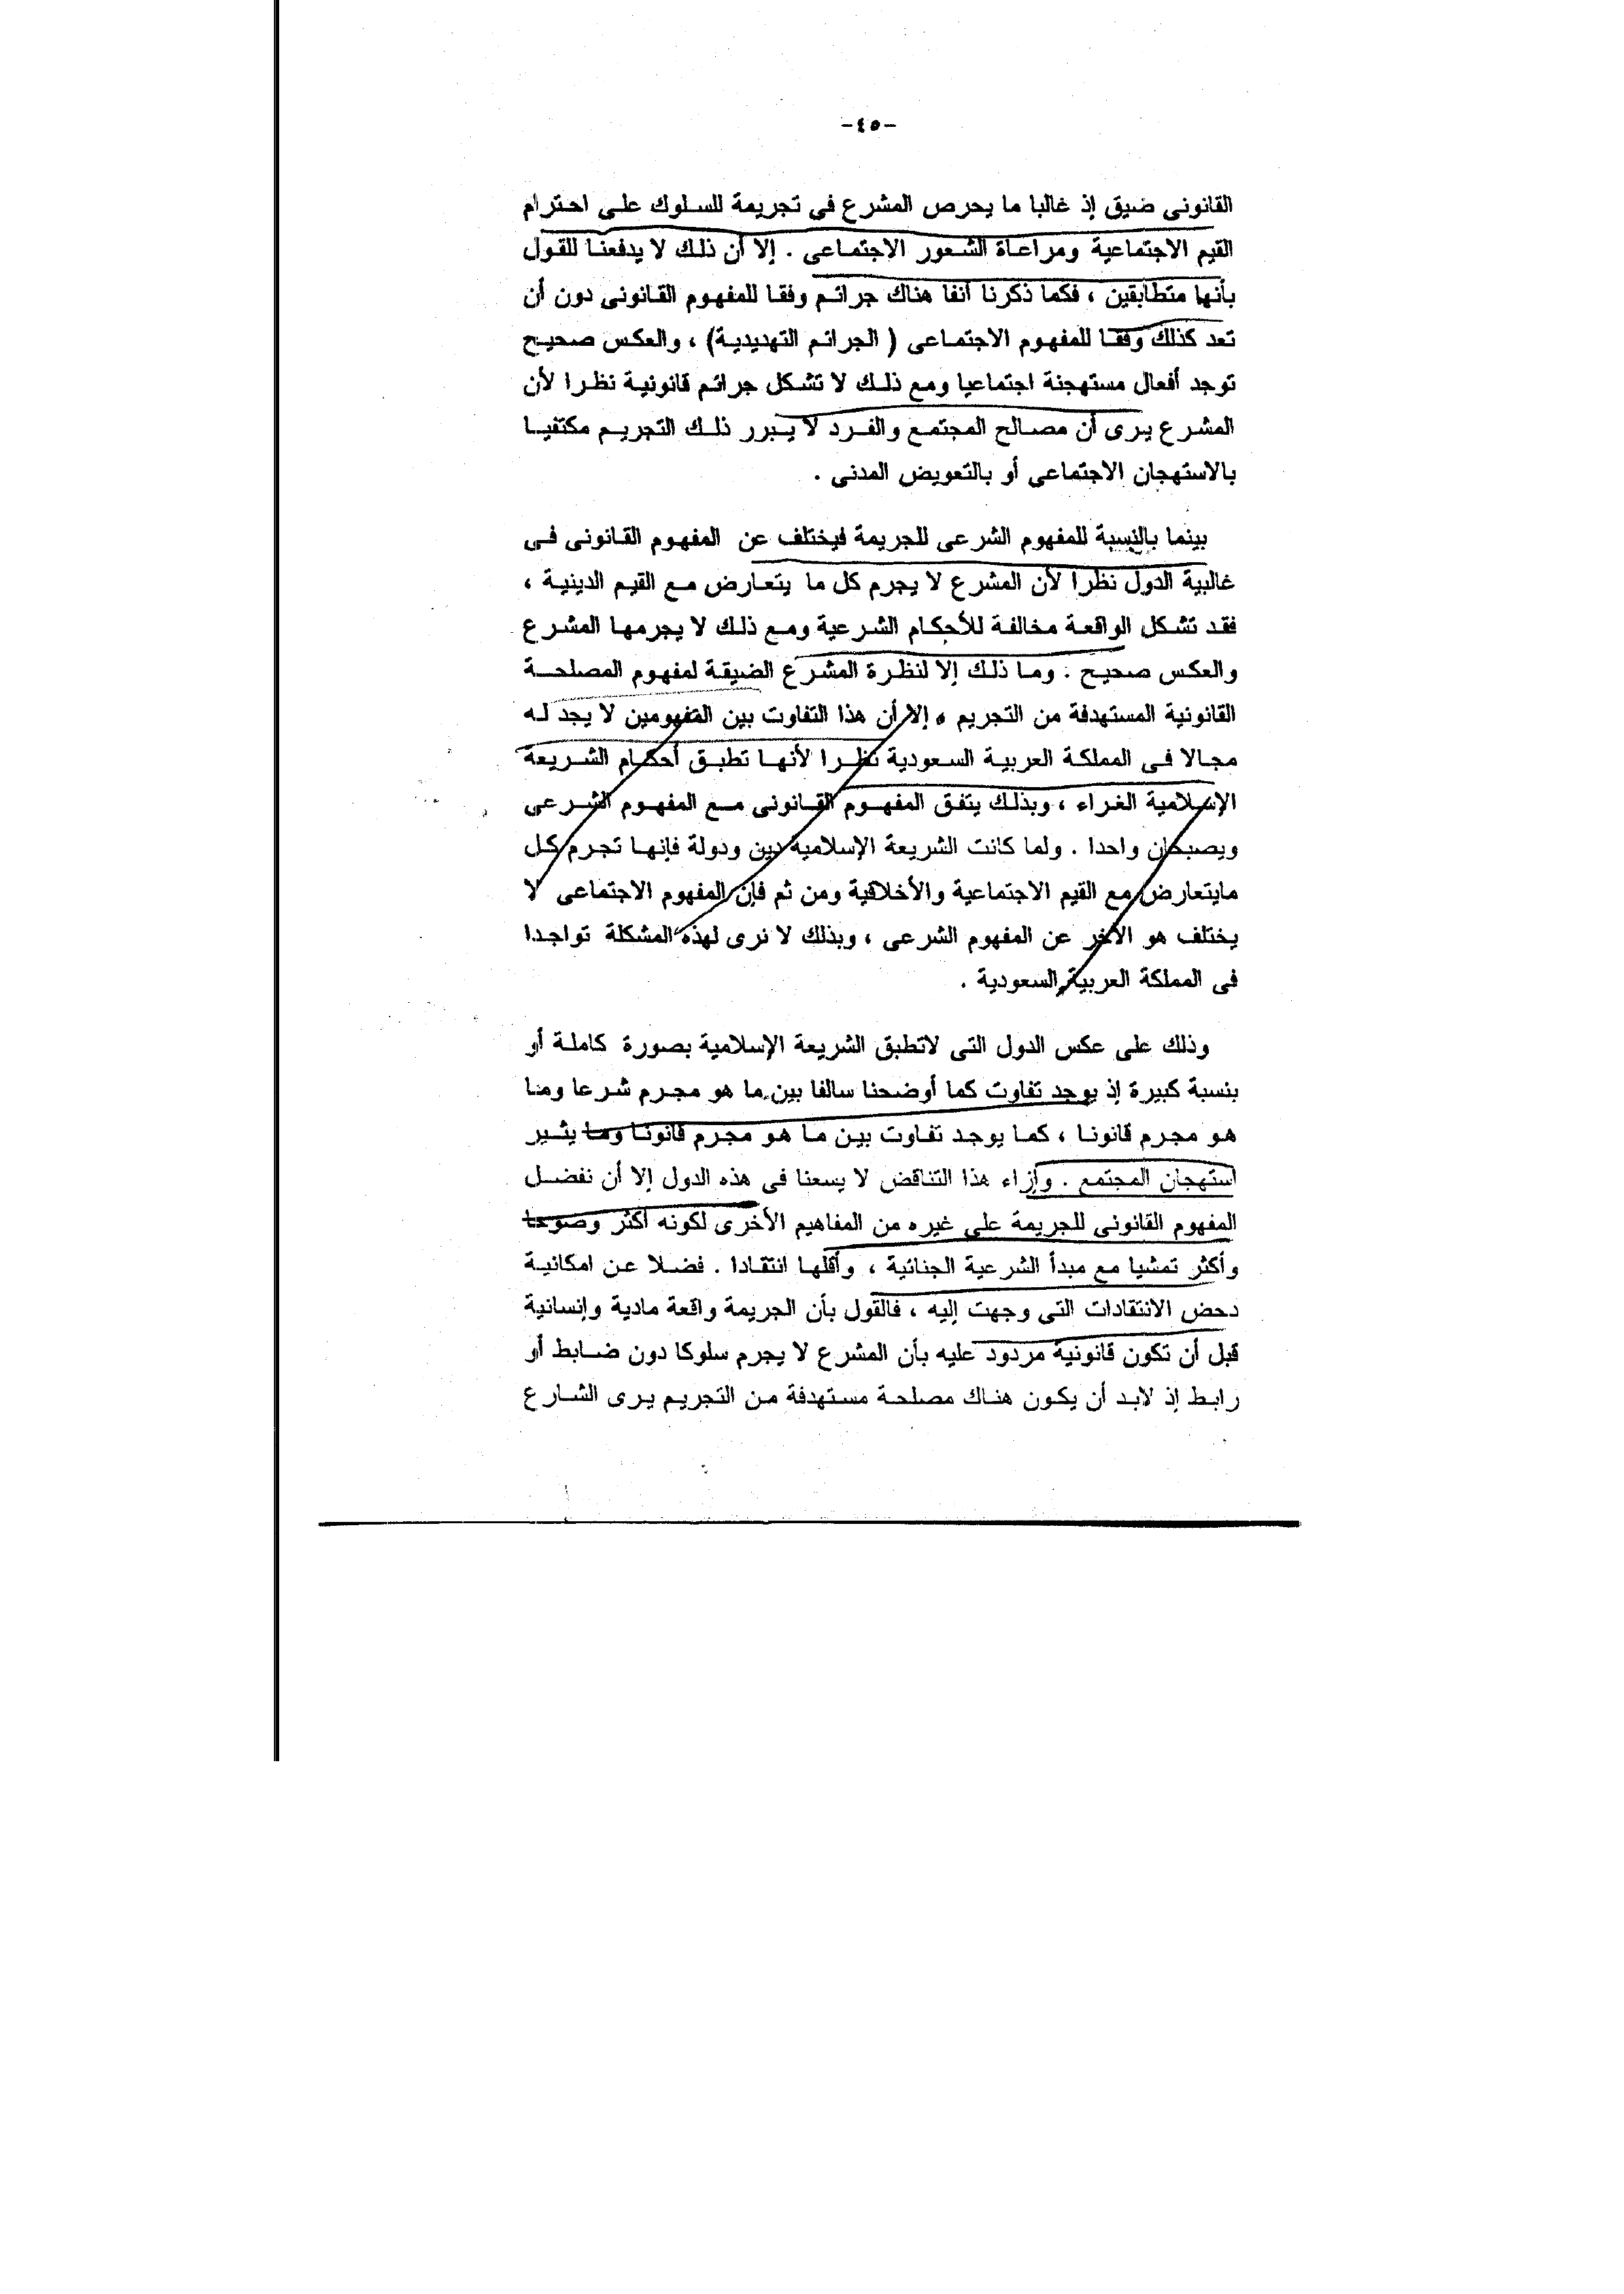 -٤٥-
القانونى ضيق إذ غالبا ما يحرص المشرع فى تجريمة للسلوك على احترام
القيم الاجتماعية ومراعاة الشعور الاجتماعى . إلا أن ذلك لا يدفعنا للقول
بأنها متطابقين ، فكما ذكرنا آنفا هناك جرائم وفقا للمفهوم القانونى دون أن
تعد كذلك وفقا للمفهوم الاجتماعى ( الجرائم التهديدية) ، والعكس صحيح
توجد أفعال مستهجنة اجتماعيا ومع ذلك لا تشكل جرائم قانونية نظرا لأن
المشرع يرى أن مصالح المجتمع والفرد لا يبرر ذلك التجريم مكتفيا
بالاستهجان الاجتماعى أو بالتعويض المدنى .
بينما بالنسبة للمفهوم الشرعى للجريمة فيختلف عن المفهوم القانونى فى
غالبية الدول نظرا لأن المشرع لا يجرم كل ما يتعارض مع القيم الدينية ،
فقد تشكل الواقعة مخالفة للأحكام الشرعية ومع ذلك لا يجرمها المشرع
والعكس صحيح . وما ذلك إلا لنظرة المشرع الضيقة لمفهوم المصلحة
القانونية المستهدفة من التجريم ، إلا أن هذا التفاوت بين المفهومين لا يجد له
مجالا فى المملكة العربية السعودية نظرا لأنها تطبق أحكام الشريعة
الإسلامية الغراء ، وبذلك يتفق المفهوم القانونى مع المفهوم الشرعى
ويصبحان واحدا . ولما كانت الشريعة الإسلامية دين ودولة فإنها تجرم كل
مايتعارض مع القيم الاجتماعية والأخلاقية ومن ثم فإن المفهوم الاجتماعى لا
يختلف هو الآخر عن المفهوم الشرعى ، وبذلك لا نرى لهذه المشكلة تواجدا
فى المملكة العربية السعودية .
وذلك على عكس الدول التى لاتطبق الشريعة الإسلامية بصورة كاملة أو
بنسبة كبيرة إذ يوجد تفاوت كما أوضحنا سالفا بين ما هو مجرم شرعا وما
هو مجرم قانونا ، كما يوجد تفاوت بين ما هو مجرم قانونا وما يثير
استهجان المجتمع . وإزاء هذا التناقض لا يسعنا فى هذه الدول إلا أن نفضل
المفهوم القانونى للجريمة على غيره من المفاهيم الأخرى لكونه أكثر وضوحا
وأكثر تمشيا مع مبدأ الشرعية الجنائية ، وأقلها انتقادا . فضلا عن امكانية
دحض الانتقادات التى وجهت إليه ، فالقول بأن الجريمة واقعة مادية وإنسانية
قبل أن تكون قانونية مردود عليه بأن المشرع لا يجرم سلوكا دون ضابط أو
رابط إذ لابد أن يكون هناك مصلحة مستهدفة من التجريم يرى الشارع